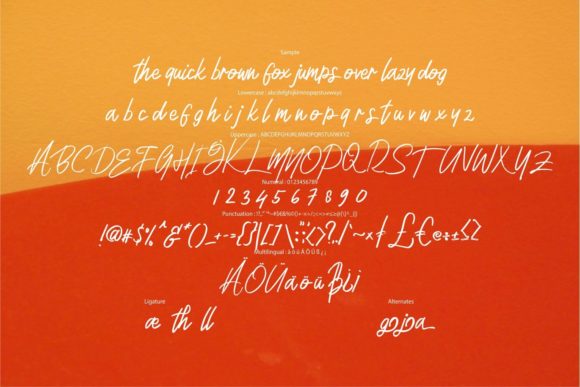 Sample
the quick brown fox jumps over lazy dog
Lowercase : abcdefghijklmnopqrstuvwxyz
a b c d e f g h i j k l m n o p q r s t u v w x y z
Uppercase : ABCDEFGHIJKLMNOPQRSTUVWXYZ
ABCDEFGHIJKLMNOPQRSTUVWXYZ
Numeral : 0123456789
1 2 3 4 5 6 7 8 9 0
Punctuation :
!@#$%^&*()_+-={}|[]\:;'<>?,./
Multilingual : ä ö ü Ä Ö Ü ß ¿ ¡
ÄÖÜäöüß¿¡
Ligature
Alternates
æ th ll